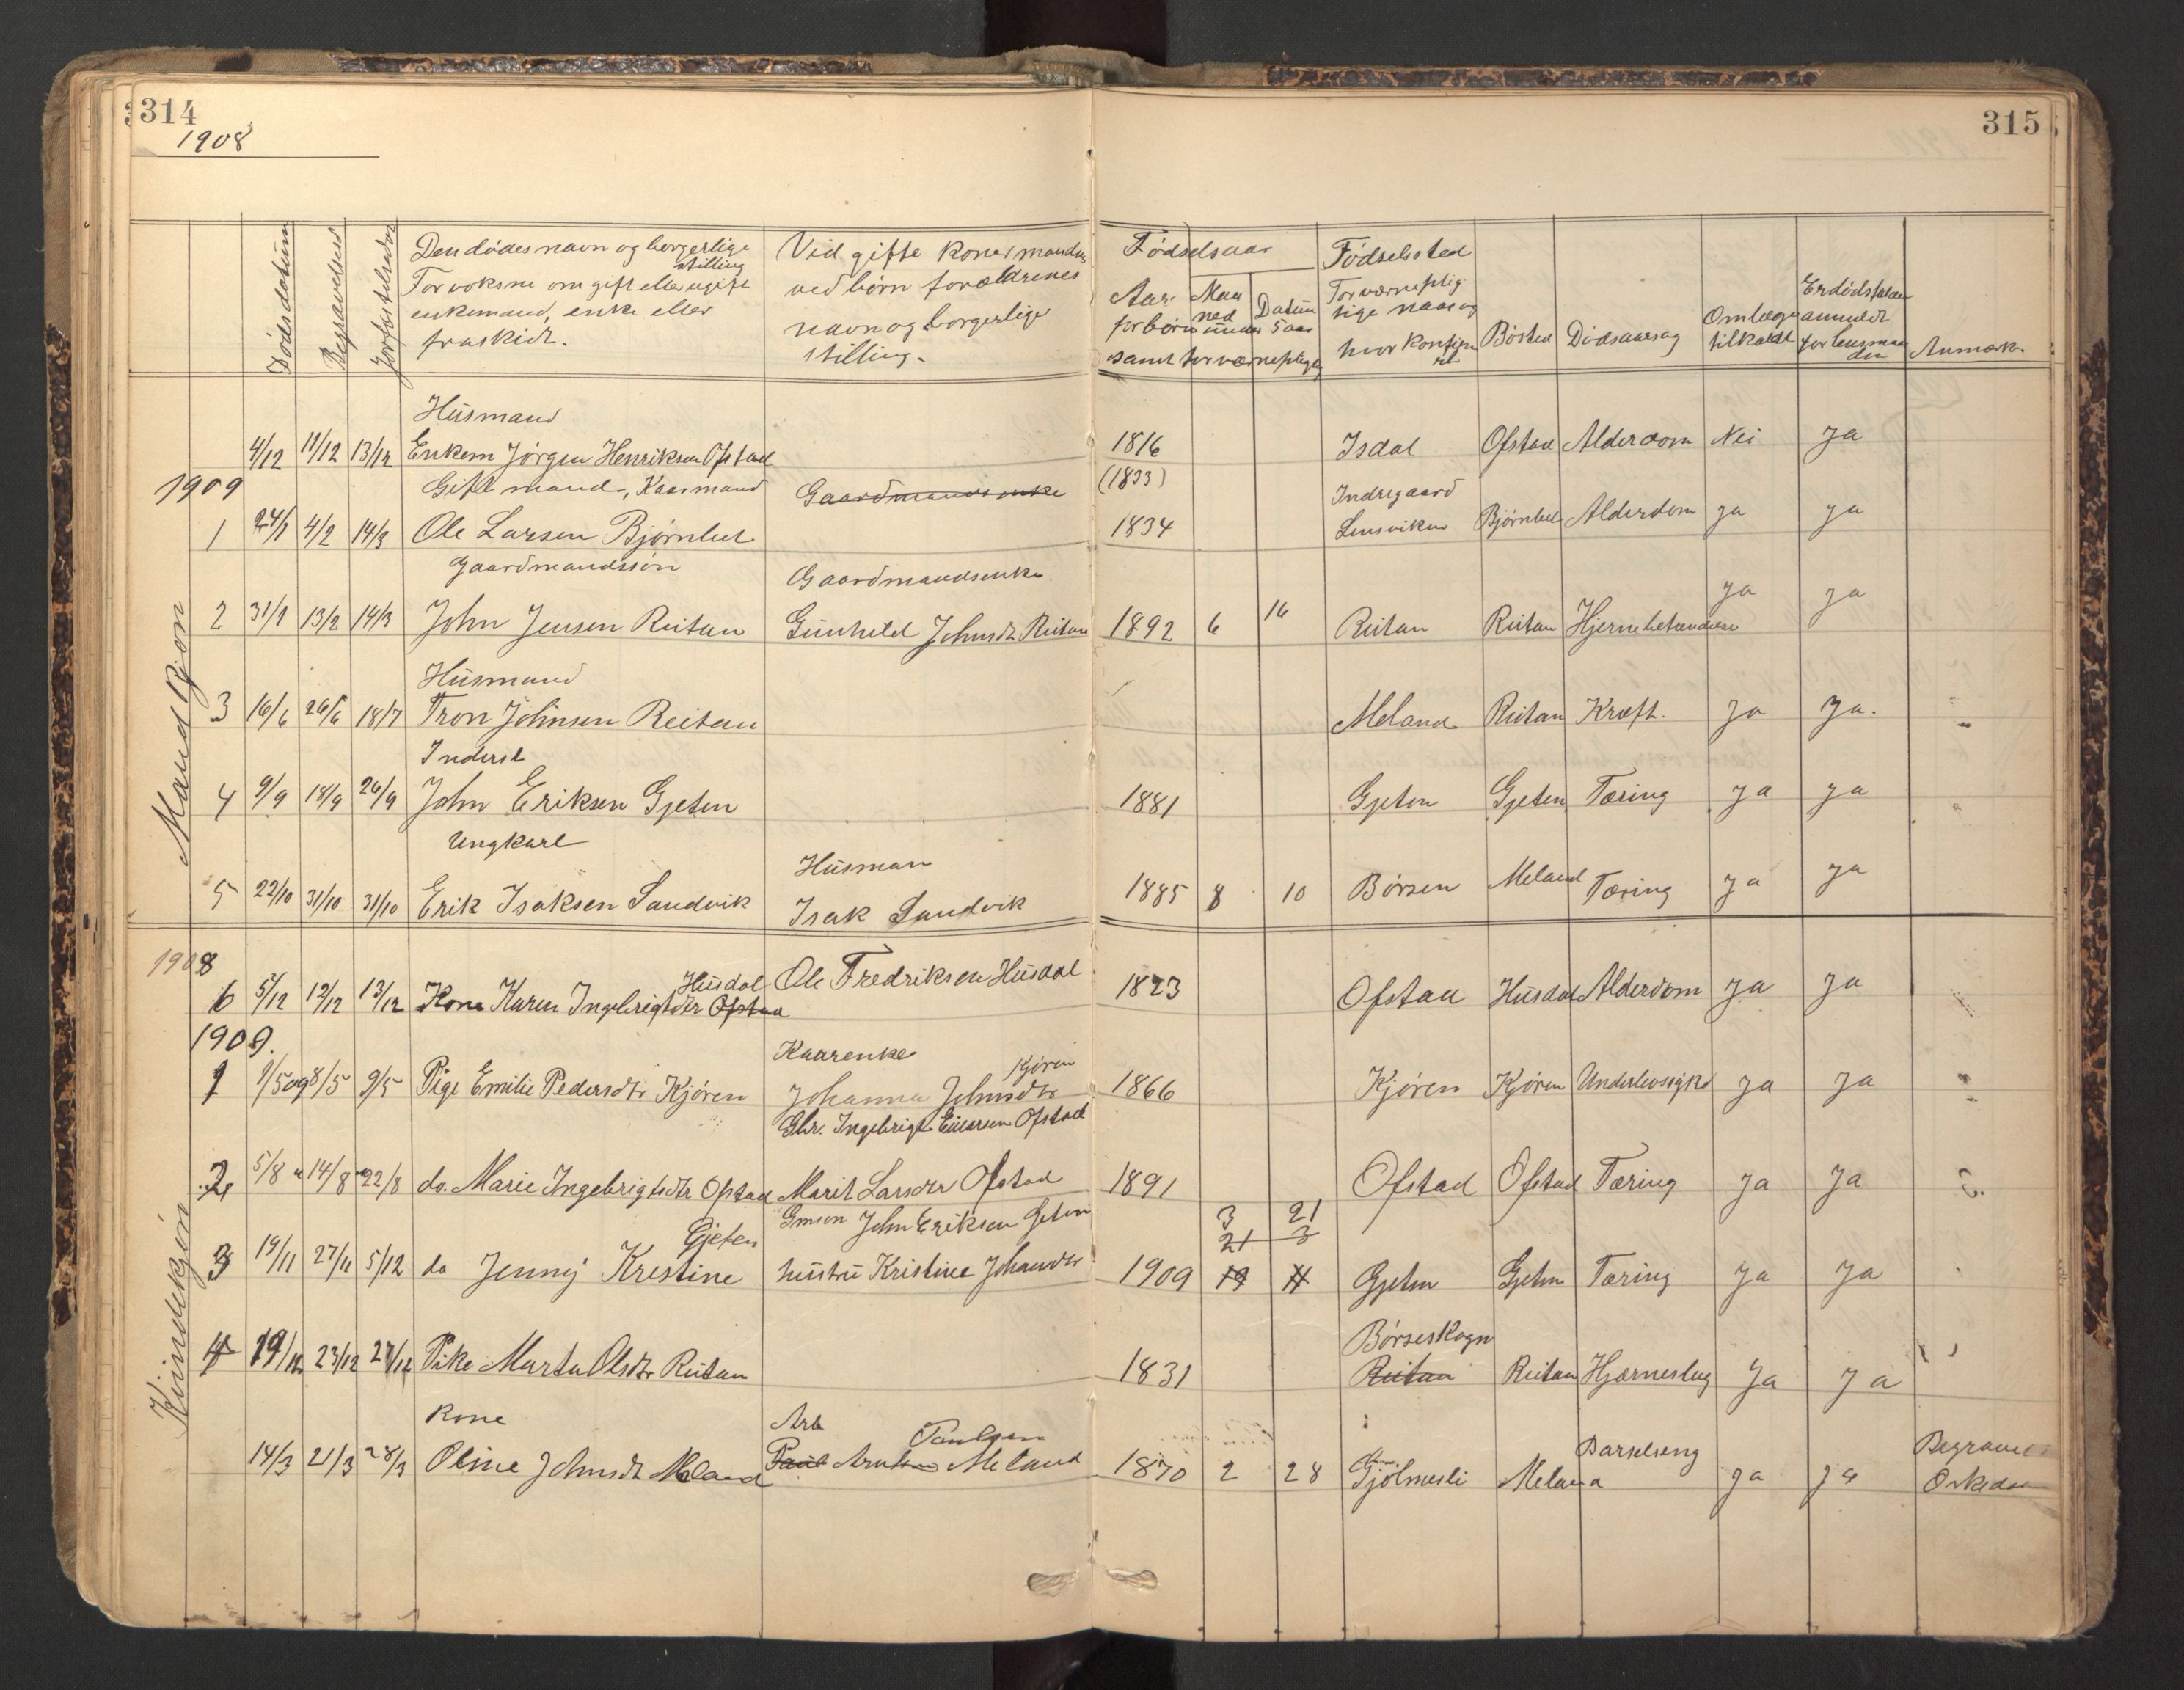 314
1908
315
Dødsdatum
Begravelsesd
Jordfæstelsesdm
Den dødes navn og borgerlige
stilling
For voksne om gift eller ugift
enkemand, enke eller
fraskidt.
Vid gifte koner mandens
ved børn forældrenes
navn og borgerlige
stilling.
Fødselsaar
Aar Maaned Datum
for børn under 5 aar
samt for værnepligtig
Fødselssted
For værneplig
tige naar og
hvor konfirm
Bosted
Dødsaarsag
Om læge
tilkaldt
Er dødsfalde
anmeldt
for lensman
den
Anmærk.
Mandkjøn
Husmand
4/12 11/12 13/12 Enkem Jørgen Henriksen Ofstad 1816 Isdal Ofstad Alderdom Nei Ja
1909
Gift mand, Kaarmand Gaardmandsenke (1833) Indregaard
1 24/1 4/2 14/3 Ole Larsen Bjørnbet 1834 Lensviken Bjørnbet Alderdom ja ja
Gaardmandssøn Gaardmandsenke
2 31/1 13/2 14/3 John Jensen Reitan Gunhild Johnsdt Reitan 1892 6 16 Reitan Reitan Hjernebetændelse ja ja
Husmand
3 16/6 26/6 18/7 Tron Johnsen Reitan Meland Reitan Kræft. ja ja.
Inderst
4 9/9 18/9 26/9 John Eriksen Gjeten 1881 Gjeten Gjeten Tæring ja ja
Ungkarl Husman
5 22/10 31/10 31/10 Erik Isaksen Sandvik Isak Sandvik 1885 8 10 Børsen Meland Tæring ja ja
Kvindekjøn
1908
Husdal
6 5/12 12/12 13/12 Kone Karen Ingebrigtsdtr Ofstad Ole Fredriksen Husdal 1823 Ofstad Husdal Alderdom ja ja
1909.
Kaarenke Kjøren
1 1/5 09 8/5 9/5 Pige Emilie Pedersdtr Kjøren Johanna Johnsdtr 1866 Kjøren Kjøren Underlivssygd ja ja
Gbr. Ingebrigt Einarsen Ofstad
2 5/8 " 14/8 " 22/8 do. Marie Ingebrigtsdtr Ofstad Marit Larsdtr Ofstad 1891 Ofstad Ofstad Tæring ja ja
Gjeten Gmson John Eriksen Gjeten 3 21
21 3
3 19/11 27/11 5/12 do Jenny Kristine hustru Kristine Johansdtr 1909 19 11 Gjeten Gjeten Tæring ja ja
Børseskogn
4 19/12 23/12 27/12 Pike Marta Olsdtr Reitan 1831 Reitan Reitan Hjærneslag ja ja
Kone Arb Paulsen Barselseng Begravet
14/3 21/3 28/3 Oline Johnsdt Meland Paul Meland 1870 2 28 Gjølmesli Meland ja ja Orkedalen